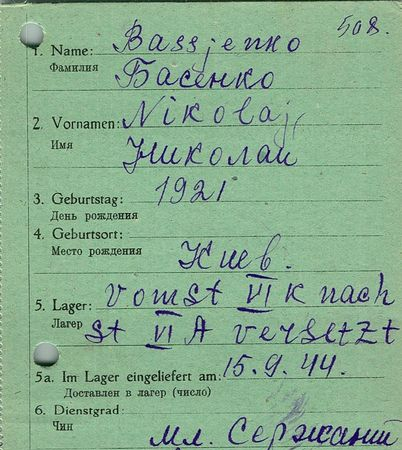 508.
1. Name: Bassjenko
Фамилия Басенко
2. Vornamen: Nikolaj
Имя Николай
3. Geburtstag: 1921
День рождения
4. Geburtsort:
Место рождения Киев.
5. Lager: vom St VI K nach
Лагерь St VI A versetzt
5a. Im Lager eingeliefert am: 15.9.44.
Доставлен в лагерь (число)
6. Dienstgrad:
Чин мл. Сержант